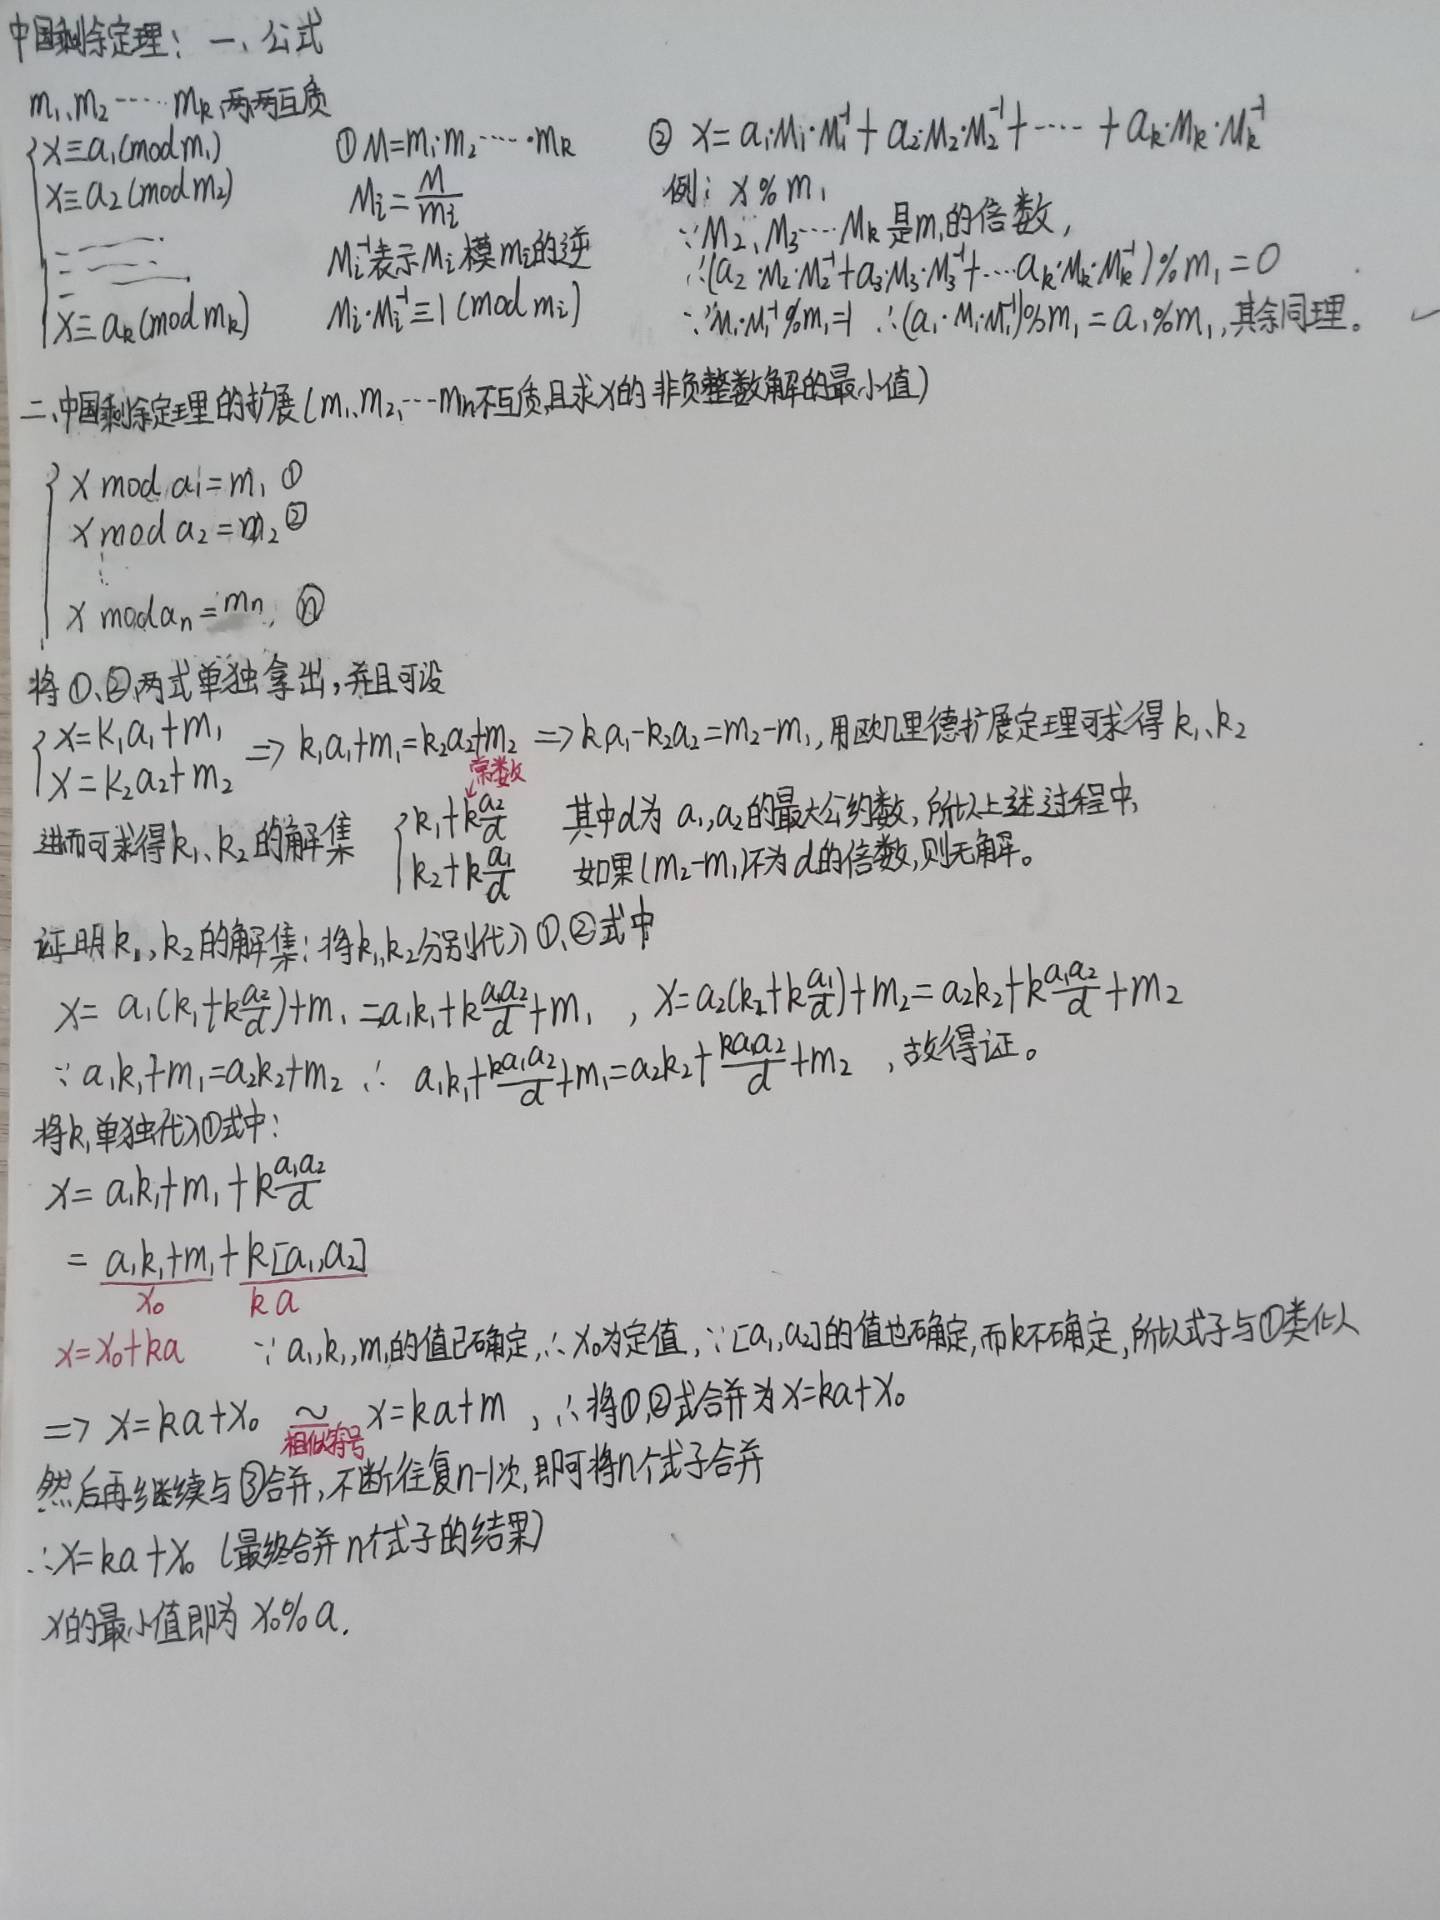 中国剩余定理：一、公式
m₁、m₂……mₖ两两互质
x≡a₁(mod m₁) ① M=m₁·m₂……·mₖ ② x=a₁·M₁·M₁⁻¹+a₂·M₂·M₂⁻¹+……+aₖ·Mₖ·Mₖ⁻¹
x≡a₂(mod m₂) Mᵢ=M/mᵢ 例：x%m₁
∵M₂、M₃……Mₖ是m₁的倍数，
Mᵢ⁻¹表示Mᵢ模mᵢ的逆 ∴(a₂·M₂·M₂⁻¹+a₃·M₃·M₃⁻¹+……aₖ·Mₖ·Mₖ⁻¹)%m₁=0
x≡aₖ(mod mₖ) Mᵢ·Mᵢ⁻¹≡1(mod mᵢ) ∵M₁·M₁⁻¹%m₁=1 ∴(a₁·M₁·M₁⁻¹)%m₁=a₁%m₁,其余同理。
二、中国剩余定理的扩展(m₁、m₂,…mₙ不互质,且求x的非负整数解的最小值)
x mod a₁=m₁ ①
x mod a₂=m₂ ②
⋮
x mod aₙ=mₙ, ⓝ
将①、②两式单独拿出,并且可设
x=k₁a₁+m₁ ⇒k₁a₁+m₁=k₂a₂+m₂ ⇒k₁a₁-k₂a₂=m₂-m₁,用欧几里德扩展定理可求得k₁、k₂
x=k₂a₂+m₂
常数
进而可求得k₁、k₂的解集 k₁+k a₂/d 其中d为a₁,a₂的最大公约数,所以上述过程中,
k₂+k a₁/d 如果(m₂-m₁)不为d的倍数,则无解。
证明k₁,k₂的解集:将k₁,k₂分别代入①、②式中
x=a₁(k₁+k a₂/d)+m₁=a₁k₁+k a₁a₂/d+m₁,x=a₂(k₂+k a₁/d)+m₂=a₂k₂+k a₁a₂/d+m₂
∵a₁k₁+m₁=a₂k₂+m₂ ∴a₁k₁+ka₁a₂/d+m₁=a₂k₂+ka₁a₂/d+m₂,故得证。
将k₁单独代入①式中:
x=a₁k₁+m₁+k a₁a₂/d
=a₁k₁+m₁+k[a₁,a₂]
x₀ ka
x=x₀+ka ∵a₁,k₁,m₁的值已确定,∴x₀为定值,∵[a₁,a₂]的值也确定,而k不确定,所以式子与①类似
⇒x=ka+x₀ ~ x=ka+m,∴将①,②式合并为x=ka+x₀
相似符号
然后再继续与③合并,不断往复n-1次,即可将n个式子合并
∴x=ka+x₀(最终合并n个式子的结果)
x的最小值即为x₀%a.